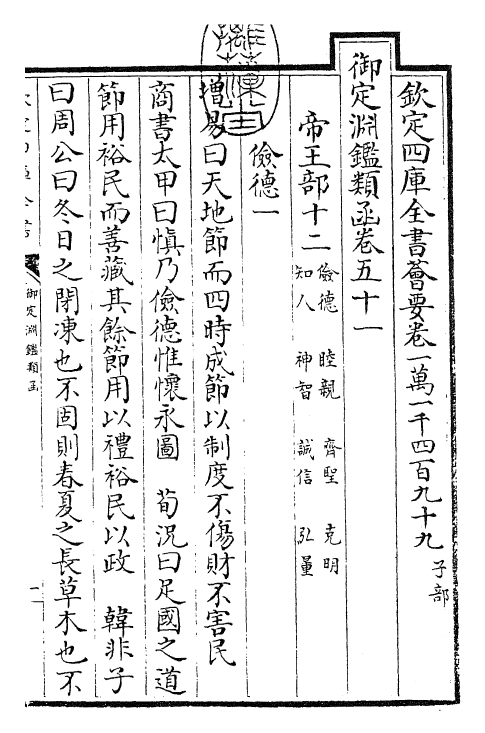 欽定四庫全書薈要卷一萬一千四百九十九 子部
御定淵鑑類函卷五十一
帝王部十二 儉德 睦親 齊聖 克明
知人 神智 誠信 弘量
儉德一
增易曰天地節而四時成節以制度不傷財不害民
商書太甲曰慎乃儉德惟懷永圖 荀況曰足國之道
節用裕民而善藏其餘節用以禮裕民以政 韓非子
曰周公曰冬日之閉凍也不固則春夏之長草木也不
御定淵鑑類函
一